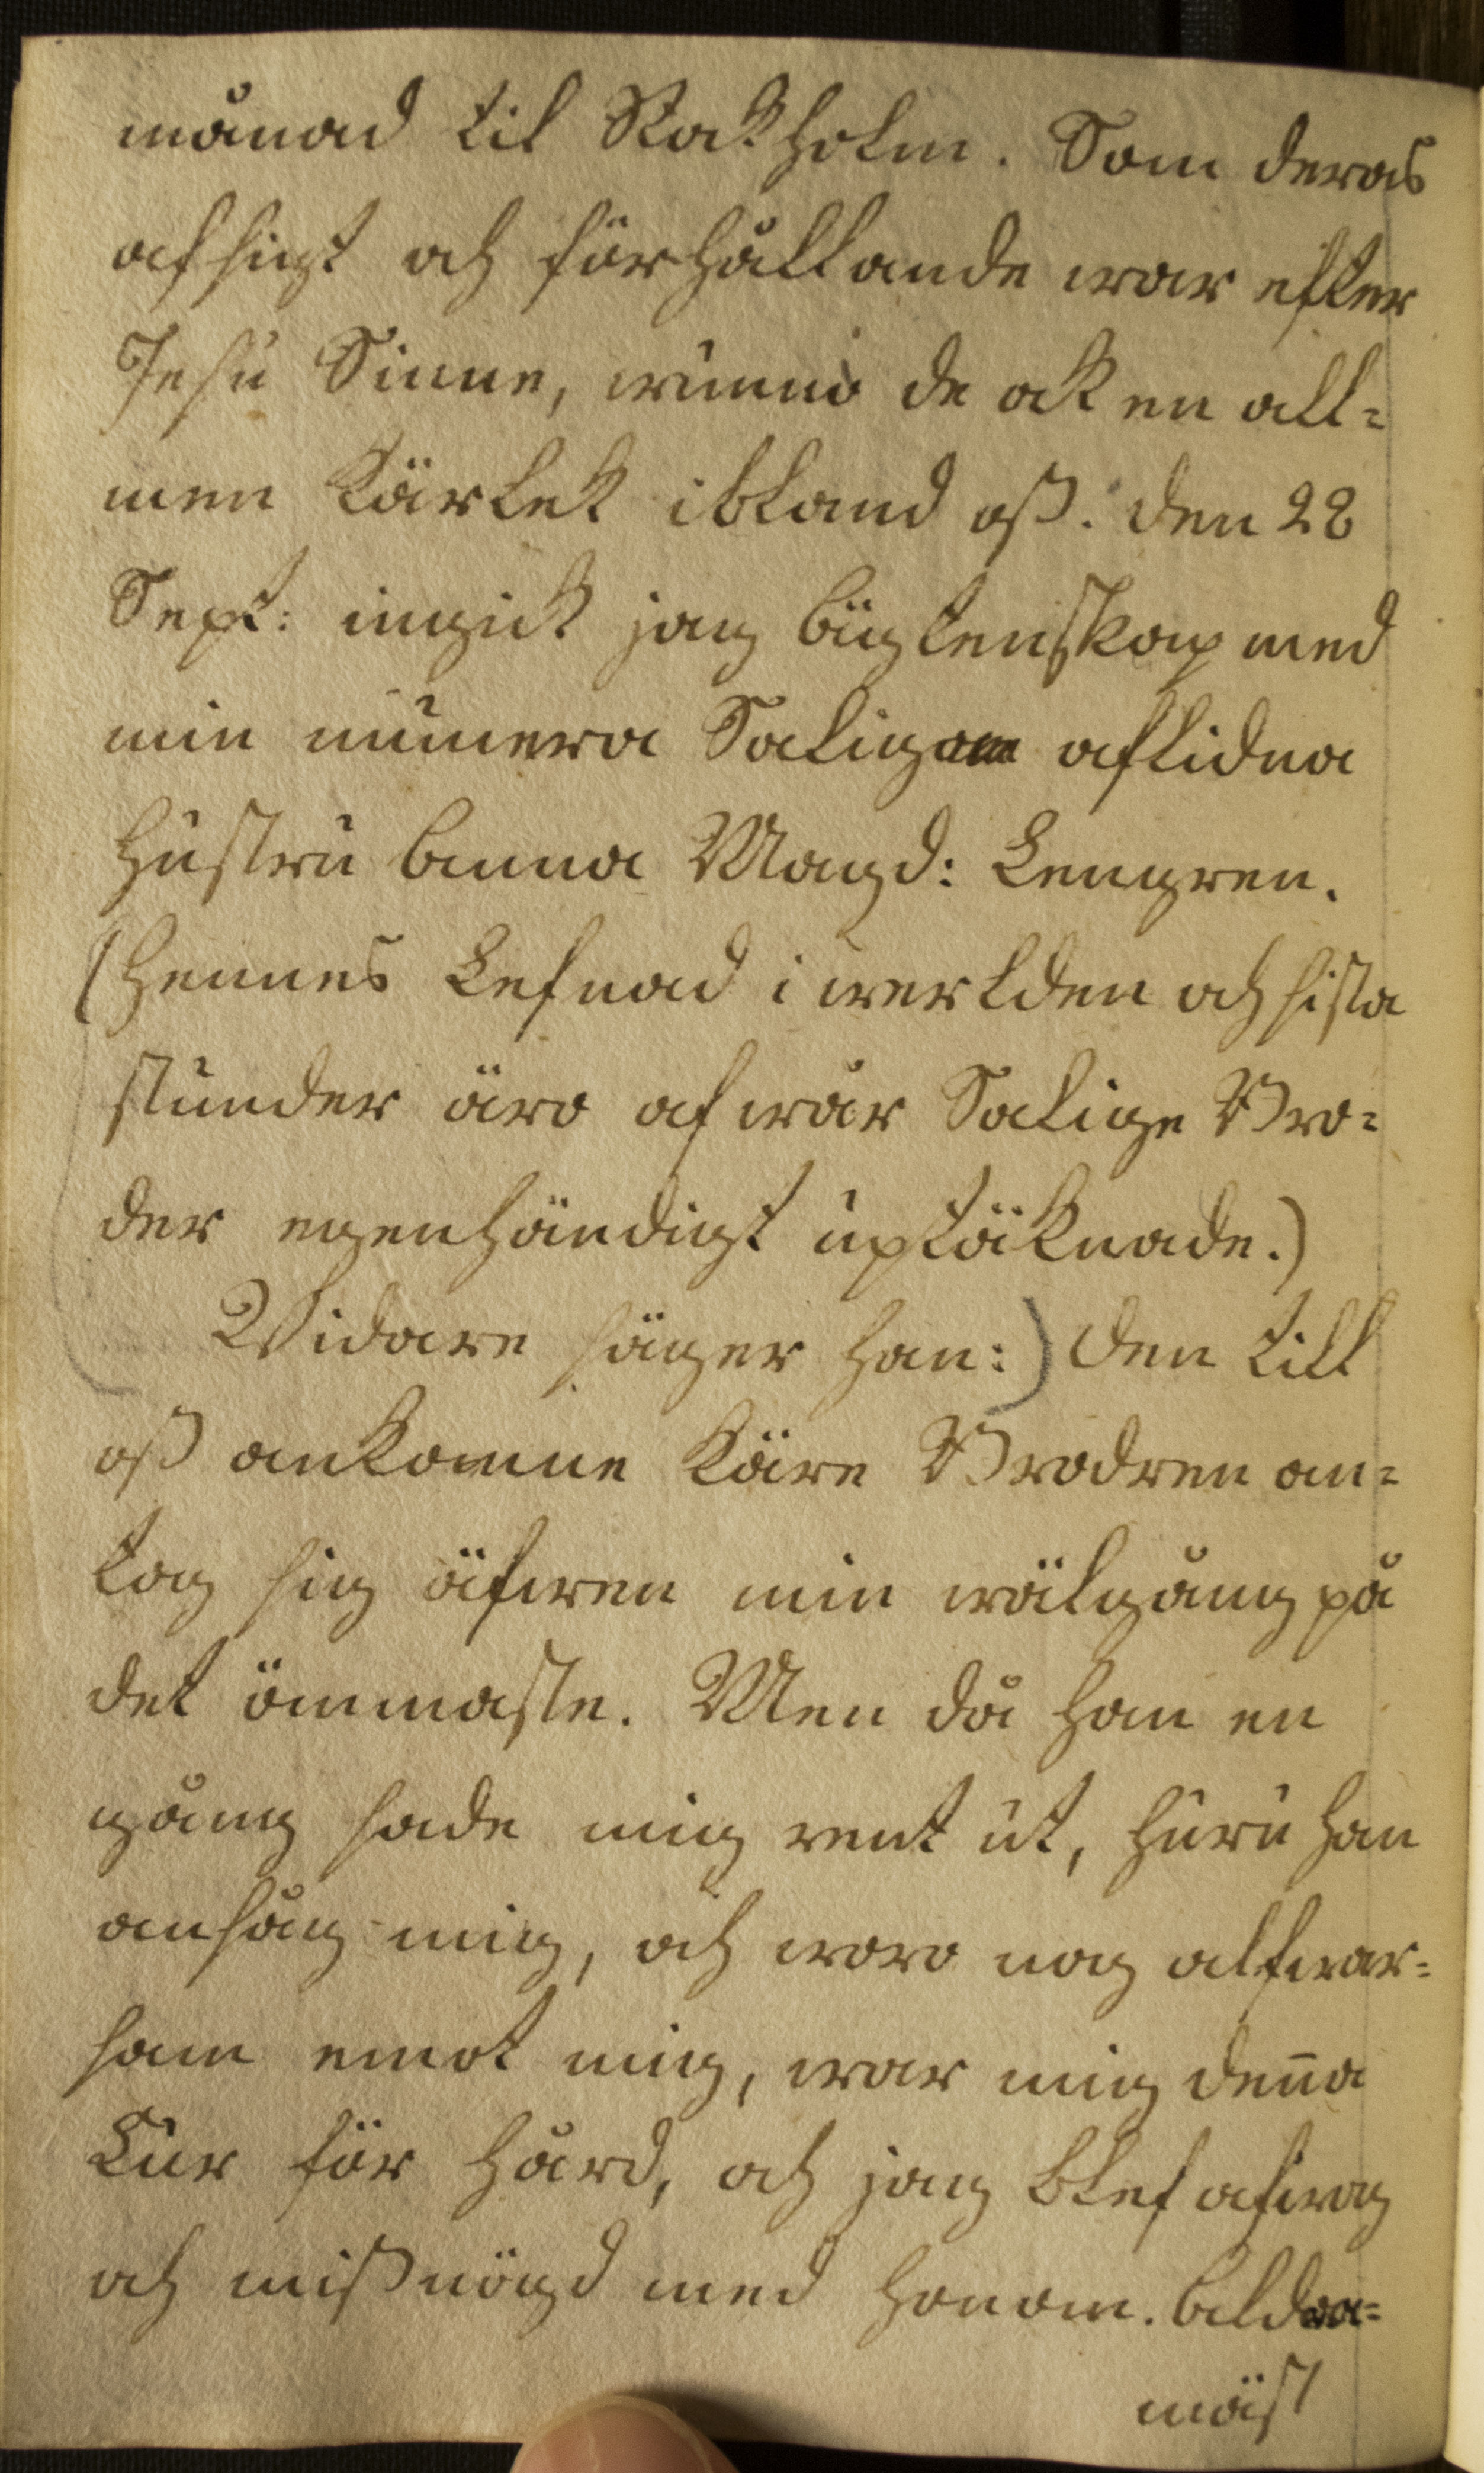 månad til Stokholm. Som deras
afsigt och förhållande war efter
Jesu Sinne, wunno de ock en all-
men Kärlek ibland oß. Den 28
Sept: ingick jag ägtenskap med
min numera Saligen aflidna
Hustru Anna Magd: Lengren.
(Hennes Lefnad i werlden och sista
stunder äro af wår Salige Bro-
der egenhändigt uptäknade.)
Widare säger han:) Den till
oß ankomne Käre Brodren an-
tog sig äfwen min wälgång på
det ömmaste. Men då han en
gång sade mig rent ut, huru han
ansåg mig, och woro nog alfwar-
sam emot mig, war mig deña
Cur för hård, och jag blef afwog
och mißnögd med honom. Aldra-
mäst